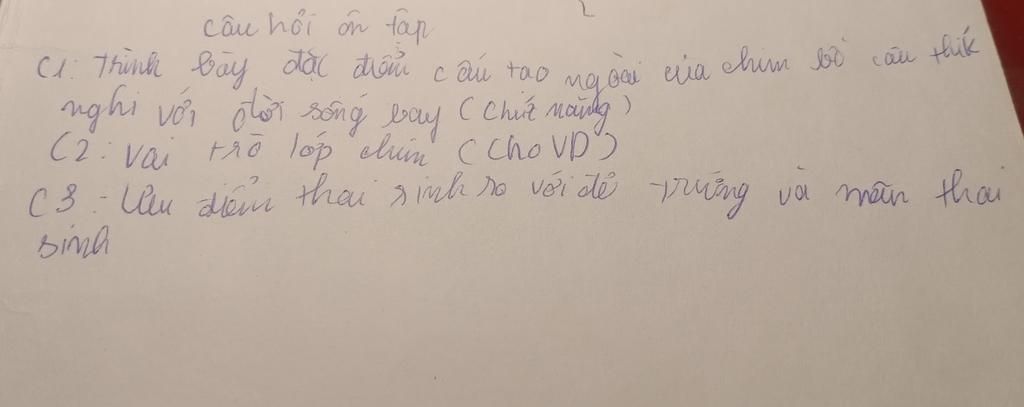 câu hỏi ôn tập
C1: Trình bày đặc điểm cấu tạo ngoài của chim bồ câu thík
nghi với đời sống bay (chức năng)
C2: vai trò lớp chim (Cho VD)
C3: Ưu điểm thai sinh so với đẻ trứng và noãn thai
sinh